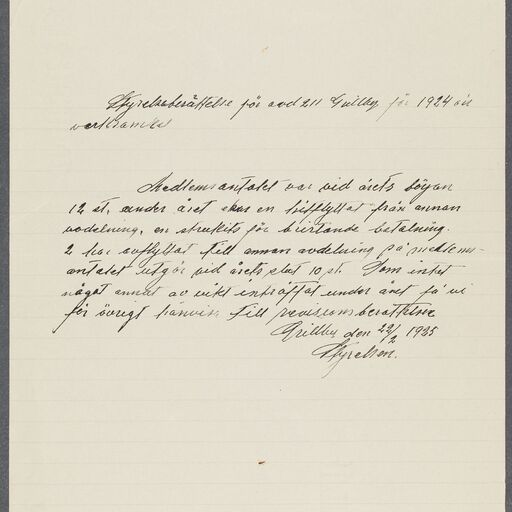 Styrelseberättelse för avd 211 Grillby för 1924 års
verksamhet
Medlemsantalet var vid årets början
12 st. under året har en tillflyttat från annan
avdelning, en strukits för bristande betalning.
2 har avflyttat till annan avdelning så medlems-
antalet utgör vid årets slut 10 st. Som intet
något annat av vikt inträffat under året få vi
för övrigt hänvisa till revisionsberättelse
Grillby den 22/2 1925
Styrelsen.